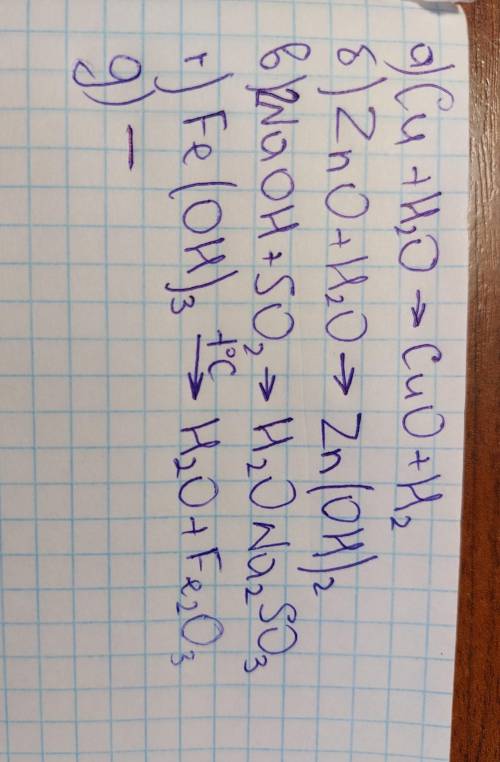 а) Cu + H₂O → CuO + H₂
б) ZnO + H₂O → Zn(OH)₂
в) 2NaOH + SO₂ → H₂O Na₂SO₃
г) Fe(OH)₃ →t°C H₂O + Fe₂O₃
д) —